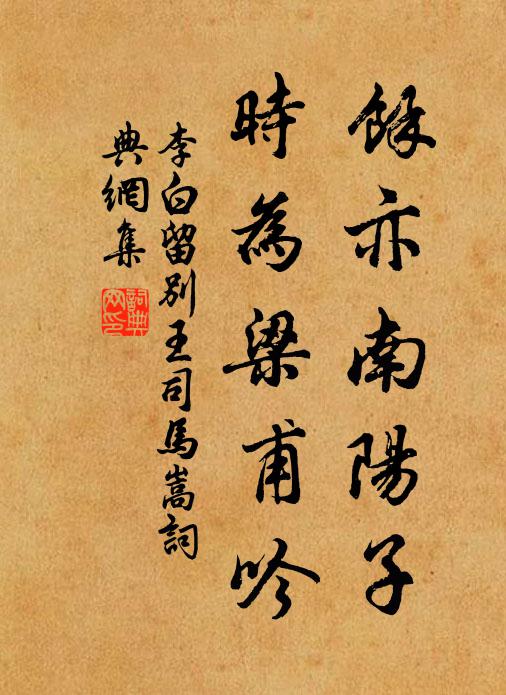 餘亦南陽子
時為梁甫吟
李白留別王司馬嵩詞
典網集
詞典
网印